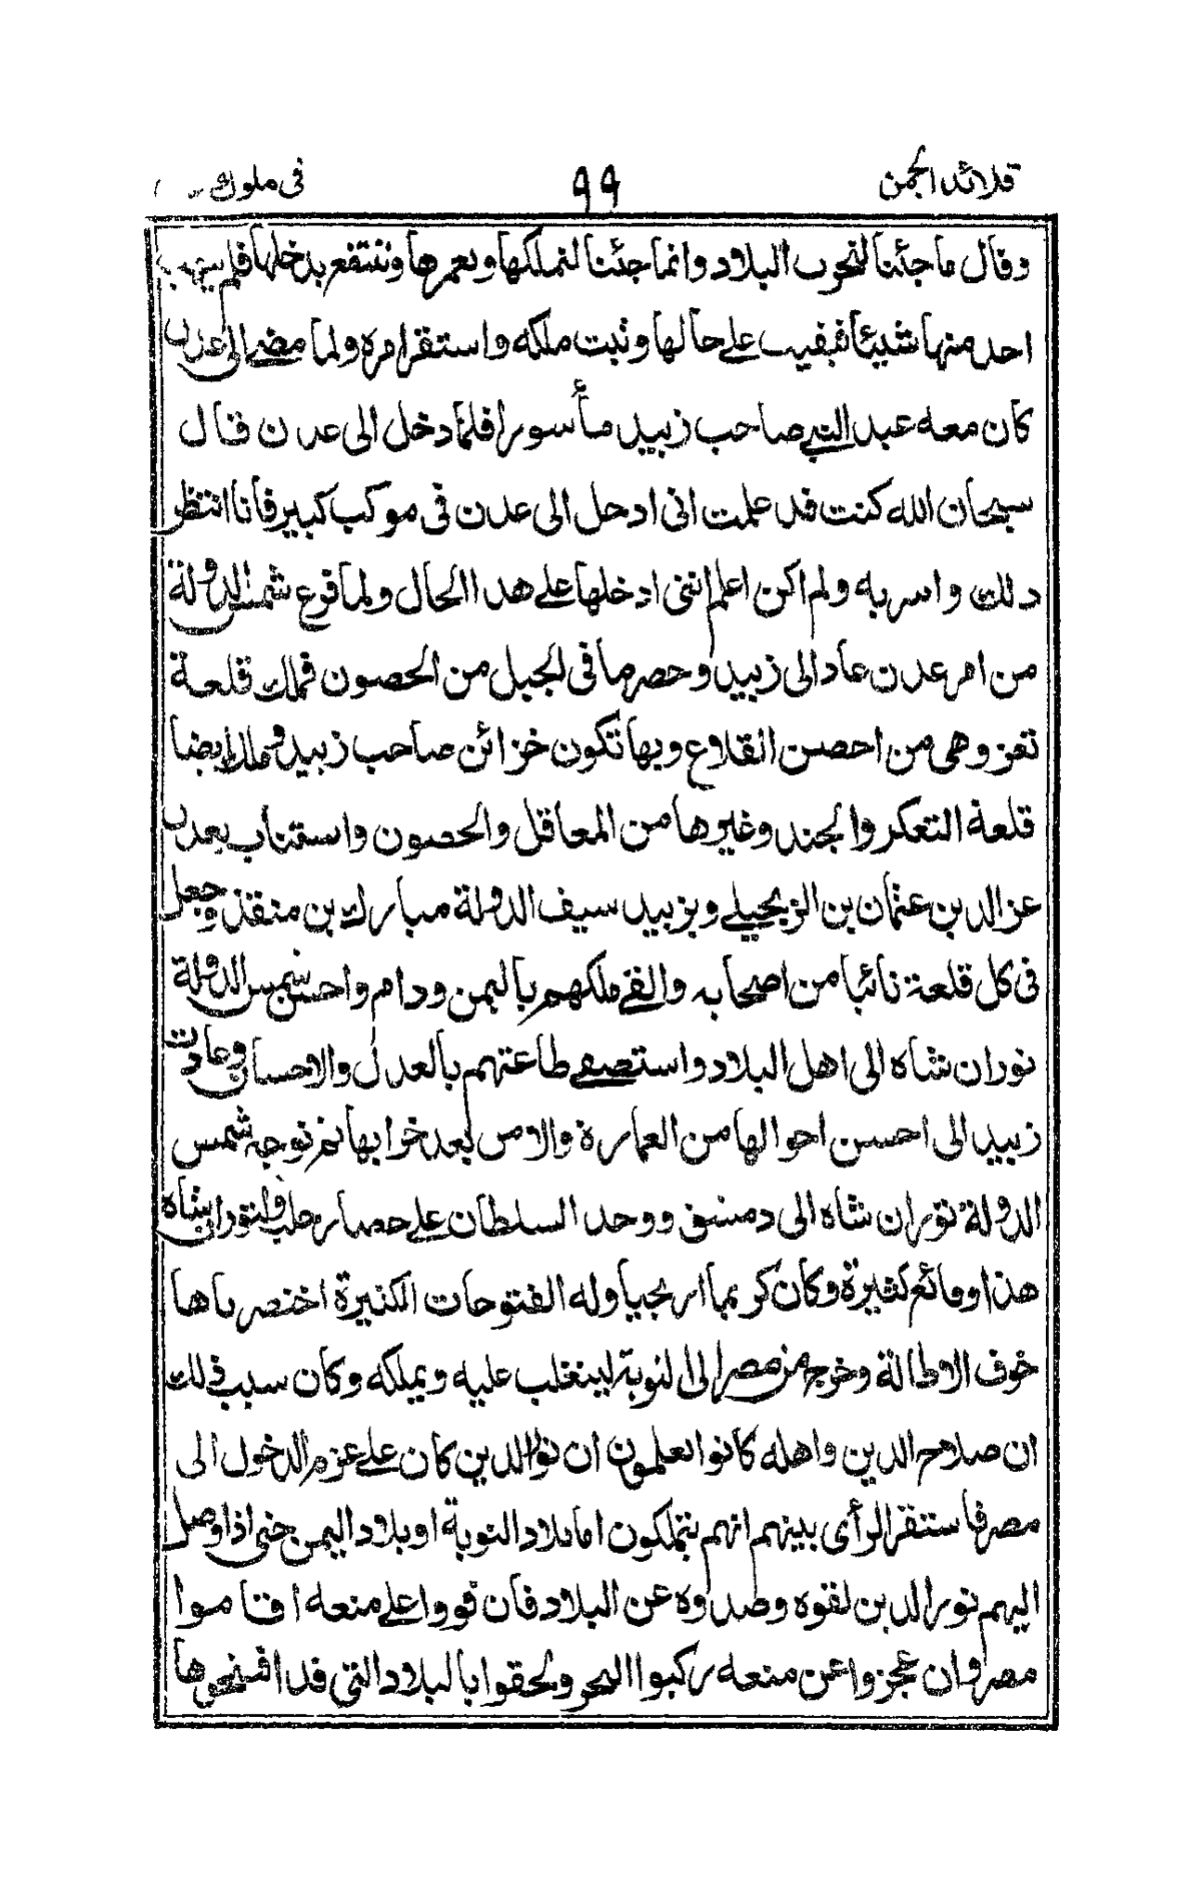 قلائد الجمن ٩٩ فى ملوك
وقال ما جئنا لنخرب البلاد وانما جئنا لنملكها ونعمرها وننتفع بدخلها فلم ينهب
احد منها شيئا فبقيت على حالها وثبت ملكه واستقر امره ولما مضى الى عدن
كان معه عبد النبى صاحب زبيد مأسورا فلما دخل الى عدن قال
سبحان الله كنت قد علمت انى ادخل الى عدن فى موكب كبير فانا انتظر
ذلك واسر به ولم اكن اعلم اننى ادخلها على هذا الحال ولما فرغ شمس الدولة
من امر عدن عاد الى زبيد وحصر ما فى الجبل من الحصون فملك قلعة
تعز وهى من احصن القلاع وبها تكون خزائن صاحب زبيد وملك ايضا
قلعة التعكر والجند وغيرها من المعاقل والحصون واستناب بعدن
عز الدين عثمان بن الزنجيلى وبزبيد سيف الدولة مبارك بن منقذ وجعل
فى كل قلعة نائبا من اصحابه والقى ملكهم باليمن ودام واحسن شمس الدولة
توران شاه الى اهل البلاد واستصفى طاعتهم بالعدل والاحسان وعادت
زبيد الى احسن احوالها من العمارة والامن بعد خرابها ثم توجه شمس
الدولة توران شاه الى دمشق ووجد السلطان على حصار حلب ولتوران شاه
هذا وقائع كثيرة وكان كريما اريحيا وله الفتوحات الكثيرة اختصرناها
خوف الاطالة وخرج من مصر الى النوبة ليتغلب عليه ويملكه وكان سبب ذلك
ان صلاح الدين واهله كانوا يعلمون ان نور الدين كان على عزم الدخول الى
مصر فاستقر الرأى بينهم انهم يتملكون اما بلاد النوبة او بلاد اليمن حتى اذا وصل
اليهم نور الدين لقوه وصدوه عن البلاد فان قووا على منعه اقاموا
بمصر وان عجزوا عن منعه ركبوا البحر ولحقوا بالبلاد التى قد افتتحوها